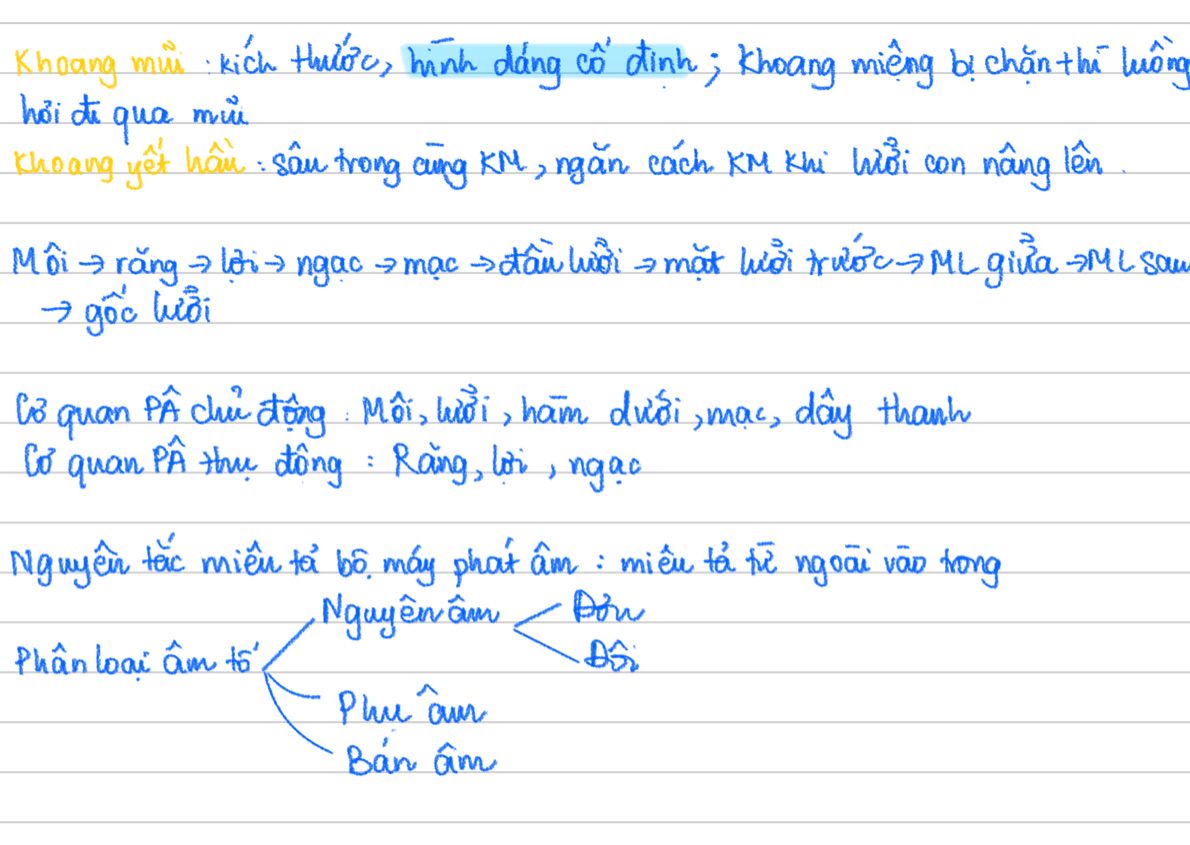 Khoang mũi : kích thước, hình dáng cố định ; khoang miệng bị chặn thì luồng
hơi đi qua mũi
Khoang yết hầu : sâu trong cùng KM, ngăn cách KM khi lưỡi con nâng lên.
Môi → răng → lợi → ngạc → mạc → đầu lưỡi → mặt lưỡi trước → ML giữa → ML sau
→ gốc lưỡi
Cơ quan PÂ chủ động : Môi, lưỡi, hàm dưới, mạc, dây thanh
Cơ quan PÂ thụ động : Răng, lợi, ngạc
Nguyên tắc miêu tả bộ máy phát âm : miêu tả từ ngoài vào trong
Nguyên âm Đơn
Phân loại âm tố Đôi
Phụ âm
Bán âm